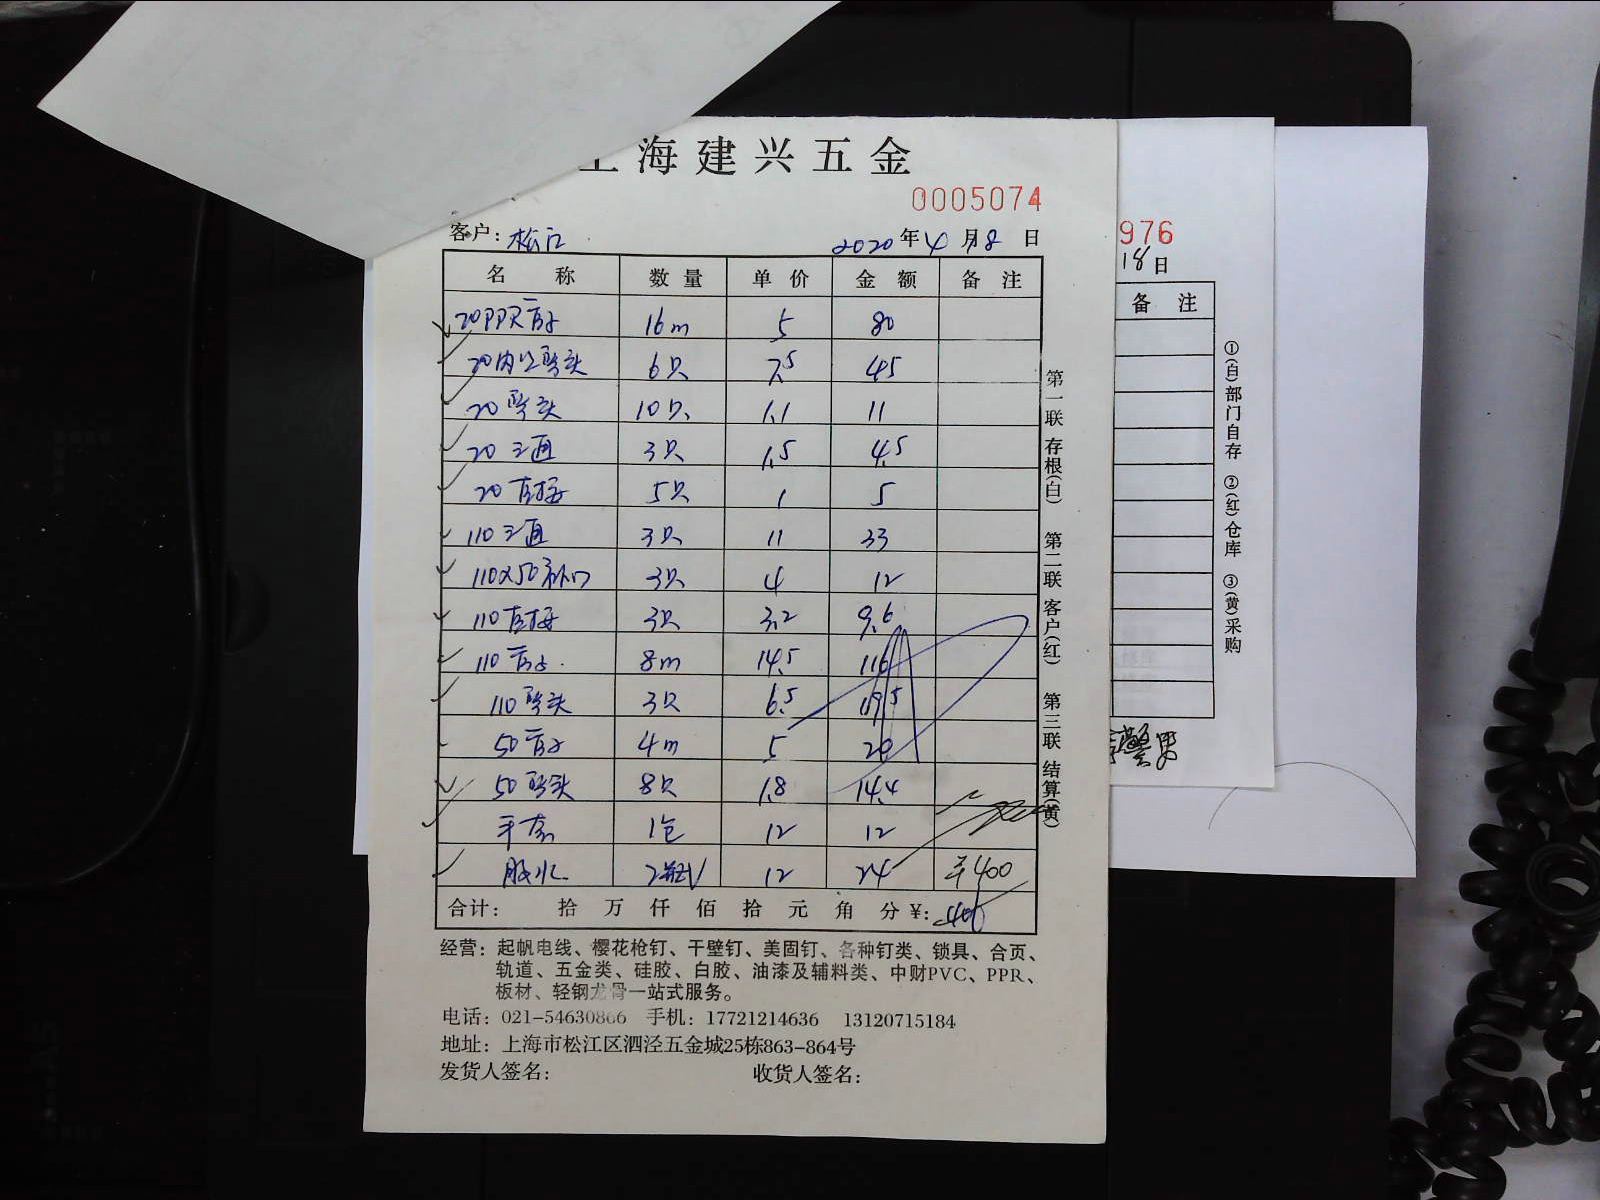 上海建兴五金
0005074
客户: 松江 2020年4月18日
名称 数量 单价 金额 备注
20PPR管子 16m 5 80
20内丝弯头 6只 7.5 45
20弯头 10只 1.1 11
20三通 3只 1.5 4.5
20直接 5只 1 5
110三通 3只 11 33
110x50补门 3只 4 12
110直接 3只 3.2 9.6
110管子 8m 14.5 116
110弯头 3只 6.5 19.5
50管子 4m 5 20
50弯头 8只 1.8 14.4
1包 12 12
胶水 2瓶 12 24 ¥400
合计: 拾万仟佰拾元角分¥:
经营: 起帆电线、樱花枪钉、干壁钉、美固钉、各种钉类、锁具、合页、
轨道、五金类、硅胶、白胶、油漆及辅料类、中财PVC、PPR、
板材、轻钢龙骨一站式服务。
电话: 021-54630866 手机: 17721214636 13120715184
地址: 上海市松江区泗泾五金城25栋863-864号
发货人签名: 收货人签名:
第一联 存根(白) 第二联 客户(红) 第三联 结算(黄)
976
18日
备注
①(白)部门自存 ②(红)仓库 ③(黄)采购